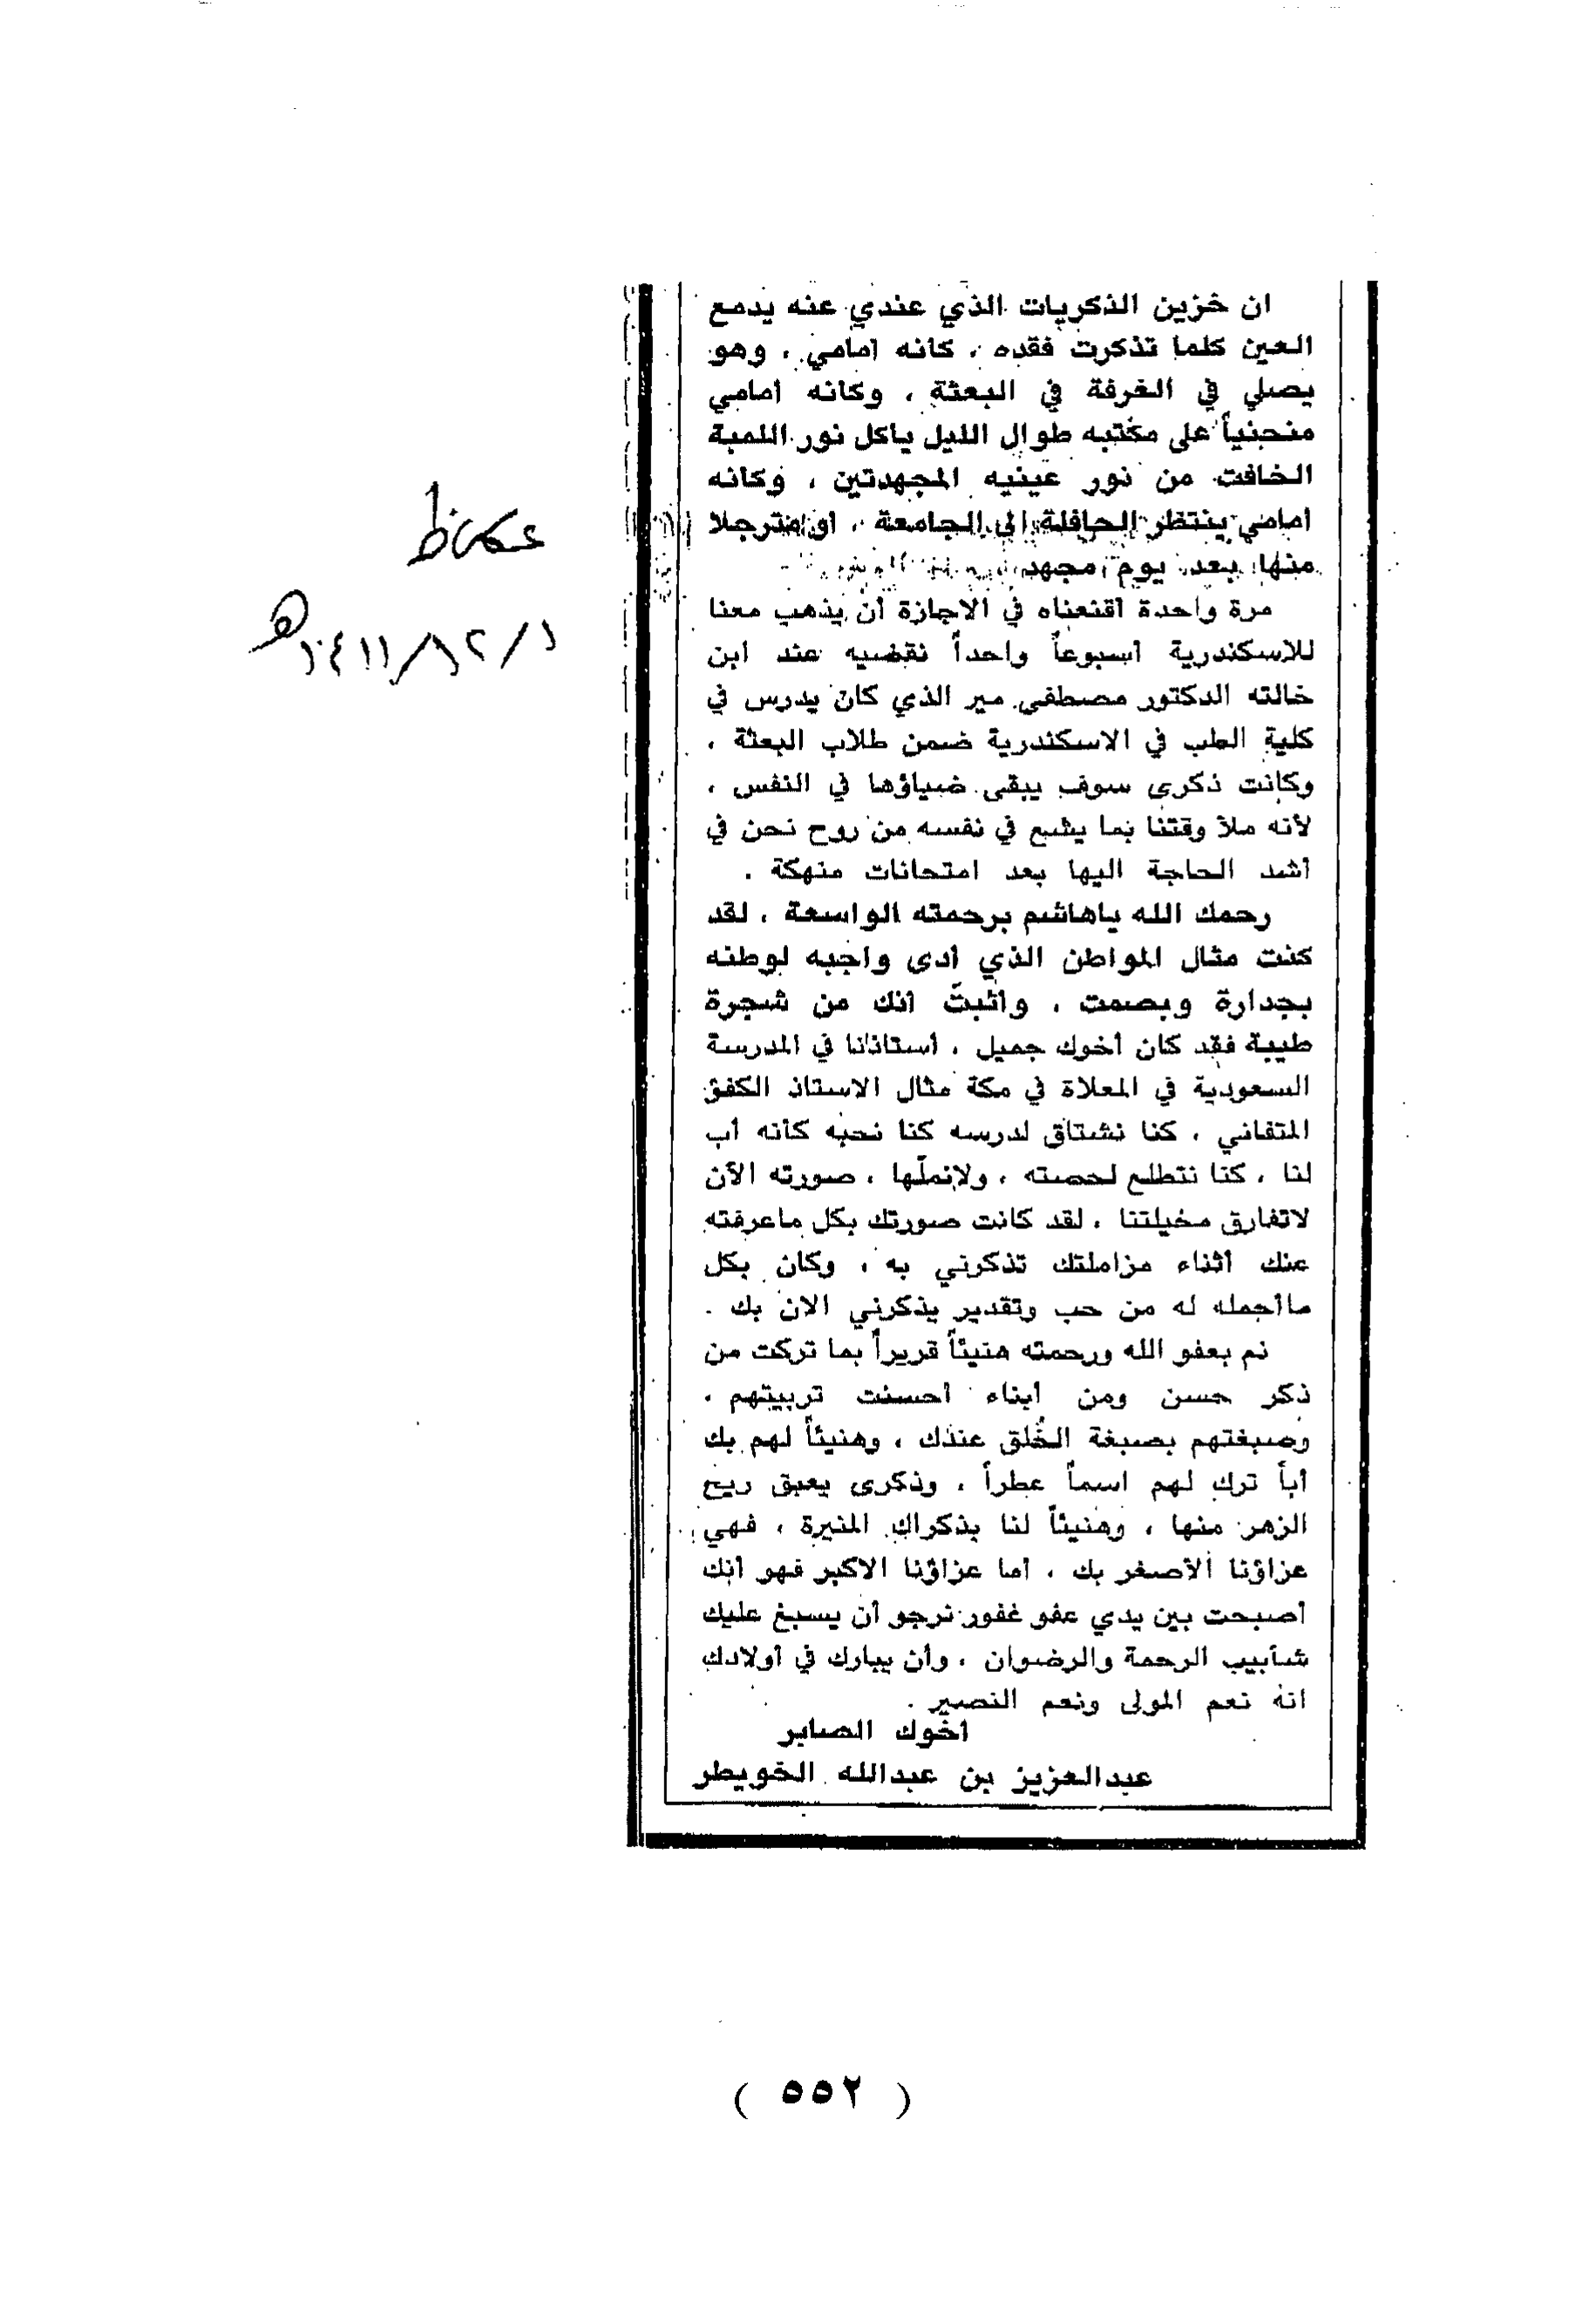 ان خزين الذكريات الذي عندي عنه يدمع
العين كلما تذكرت فقده ، كانه امامي ، وهو
يصلي في الغرفة في البعثة ، وكانه امامي
منحنياً على مكتبه طوال الليل ياكل نور اللمبة
الخافت من نور عينيه المجهدتين ، وكانه
امامي ينتظر الحافلة الى الجامعة ، او مترجلا
منها بعد يوم مجهد
مرة واحدة اقنعناه في الاجازة أن يذهب معنا
للاسكندرية اسبوعاً واحداً نقضيه عند ابن
خالته الدكتور مصطفى مير الذي كان يدرس في
كلية الطب في الاسكندرية ضمن طلاب البعثة ،
وكانت ذكرى سوف يبقى ضياؤها في النفس ،
لأنه ملأ وقتنا بما يشع في نفسه من روح نحن في
أشد الحاجة اليها بعد امتحانات منهكة .
رحمك الله ياهاشم برحمته الواسعة ، لقد
كنت مثال المواطن الذي أدى واجبه لوطنه
بجدارة وبصمت ، واثبتّ انك من شجرة
طيبة فقد كان أخوك جميل ، أستاذنا في المدرسة
السعودية في المعلاة في مكة مثال الاستاذ الكفؤ
المتفاني ، كنا نشتاق لدرسه كنا نحبه كأنه أب
لنا ، كنا نتطلع لحصته ، ولانملّها ، صورته الآن
لاتفارق مخيلتنا ، لقد كانت صورتك بكل ماعرفته
عنك أثناء مزاملتك تذكرني به ، وكان بكل
ماأحمله له من حب وتقدير يذكرني الان بك .
نم بعفو الله ورحمته هنيئاً قريراً بما تركت من
ذكر حسن ومن أبناء احسنت تربيتهم ،
وصبغتهم بصبغة الخُلق عندك ، وهنيئاً لهم بك
أباً ترك لهم اسماً عطراً ، وذكرى يعبق ريح
الزهر منها ، وهنيئاً لنا بذكراك المنيرة ، فهي
عزاؤنا الأصغر بك ، أما عزاؤنا الاكبر فهو أنك
أصبحت بين يدي عفو غفور نرجو أن يسبغ عليك
شآبيب الرحمة والرضوان ، وأن يبارك في أولادك
انه نعم المولى ونعم النصير .
اخوك الصابر
عبدالعزيز بن عبدالله الخويطر
عكاظ
١/١٢/١٤١١هـ
( ٥٥٢ )